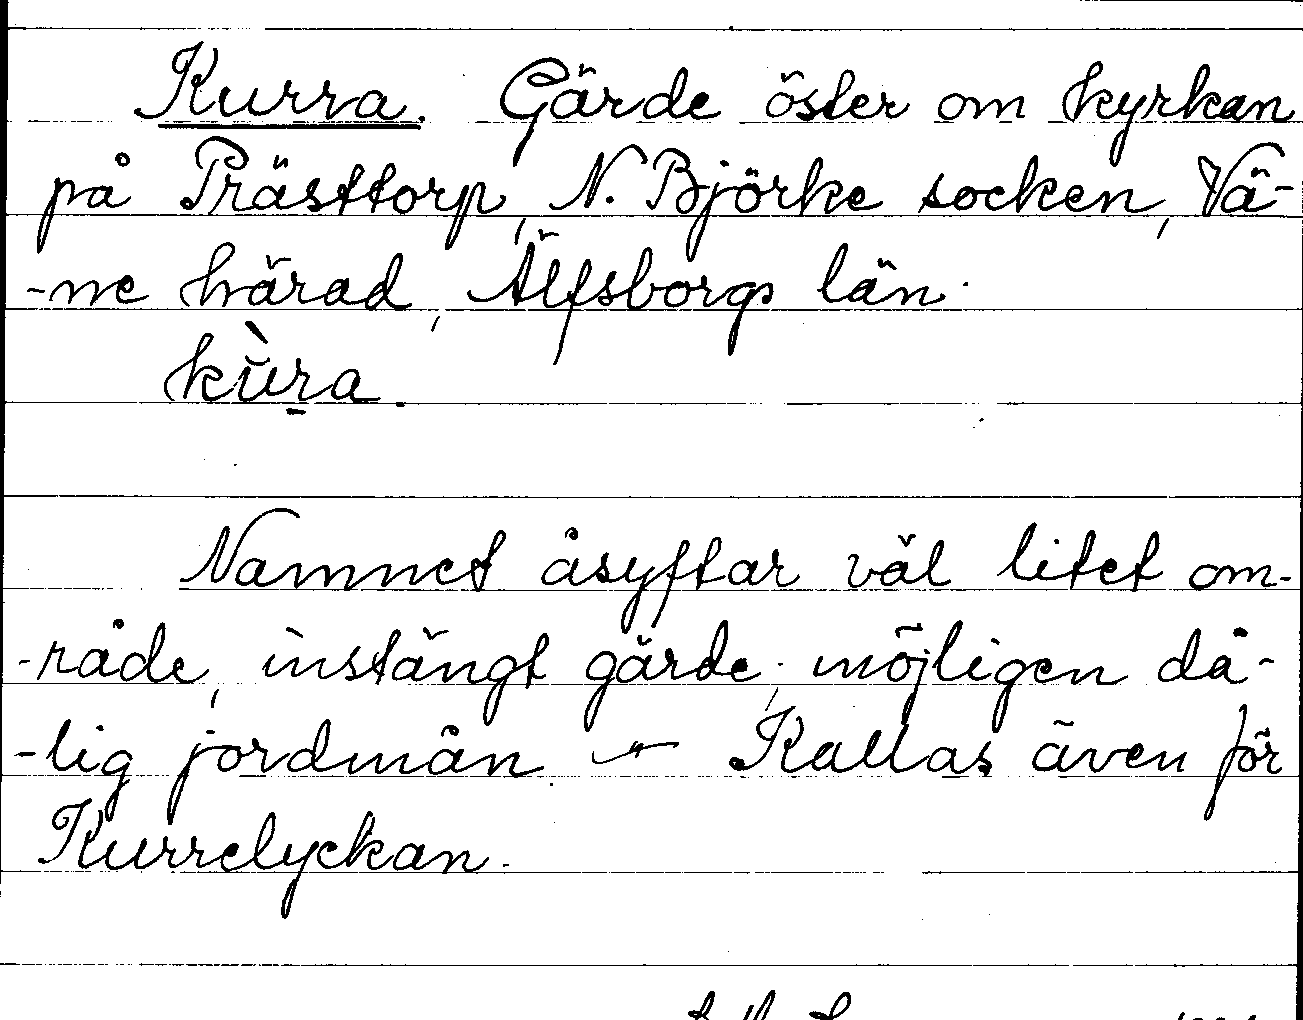 Kurra. Gärde öster om kyrkan
på Prästtorp, N. Björke socken, Vä-
-ne härad, Älfsborgs län.
kùr̠a.
Namnet åsyftar väl litet om-
-råde, instängt gärde; möjligen då-
-lig jordmån. — Kallas även för
Kurrelyckan.